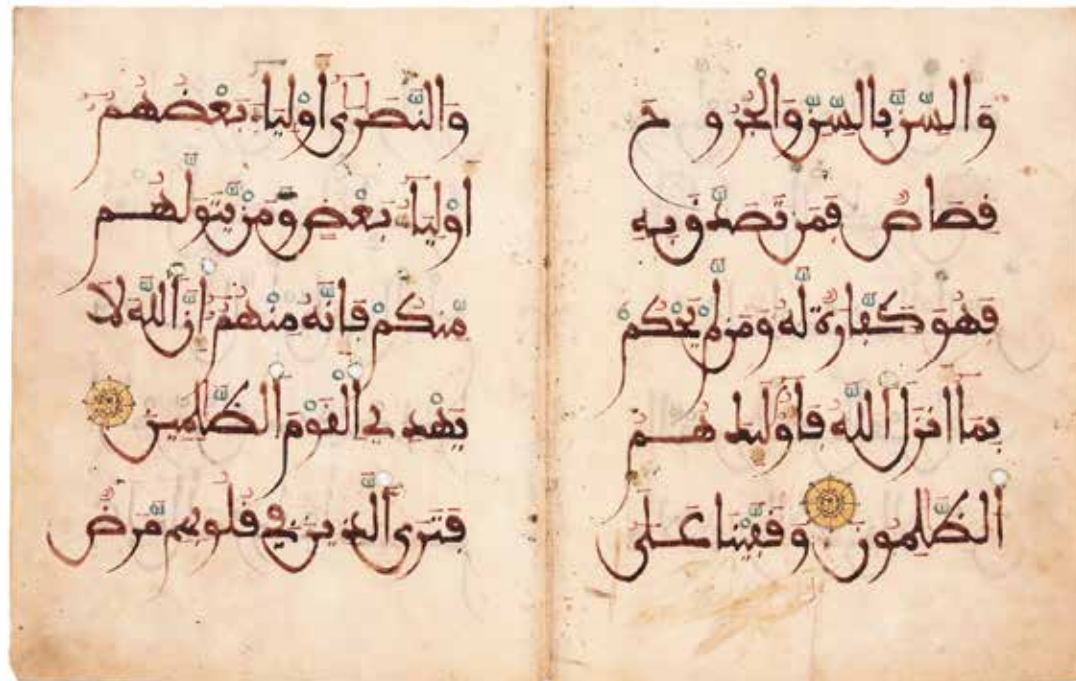 وَالسِّنَّ بِالسِّنِّ وَالْجُرُوحَ
قِصَاصٌ فَمَن تَصَدَّقَ بِهِ
فَهُوَ كَفَّارَةٌ لَّهُ وَمَن لَّمْ يَحْكُم
بِمَا أَنزَلَ اللَّهُ فَأُولَئِكَ هُمُ
الظَّلِمُونَ وَقَفَّيْنَا عَلَى
وَالنَّصَرَى أَوْلِيَاءَ بَعْضُهُمُ
أَوْلِيَاءُ بَعْضٍ وَمَن يَتَوَلَّهُم
مِّنكُمْ فَإِنَّهُ مِنْهُمُ إِنَّ اللَّهَ لَا
يَهْدِي الْقَوْمَ الظَّلِمِينَ
فَتَرَى الَّذِينَ فِي قُلُوبِهِم مَّرَضٌ